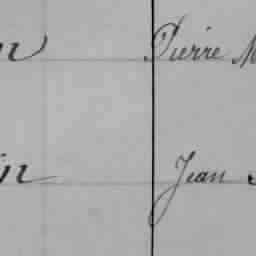 n Pierre M
in Jean